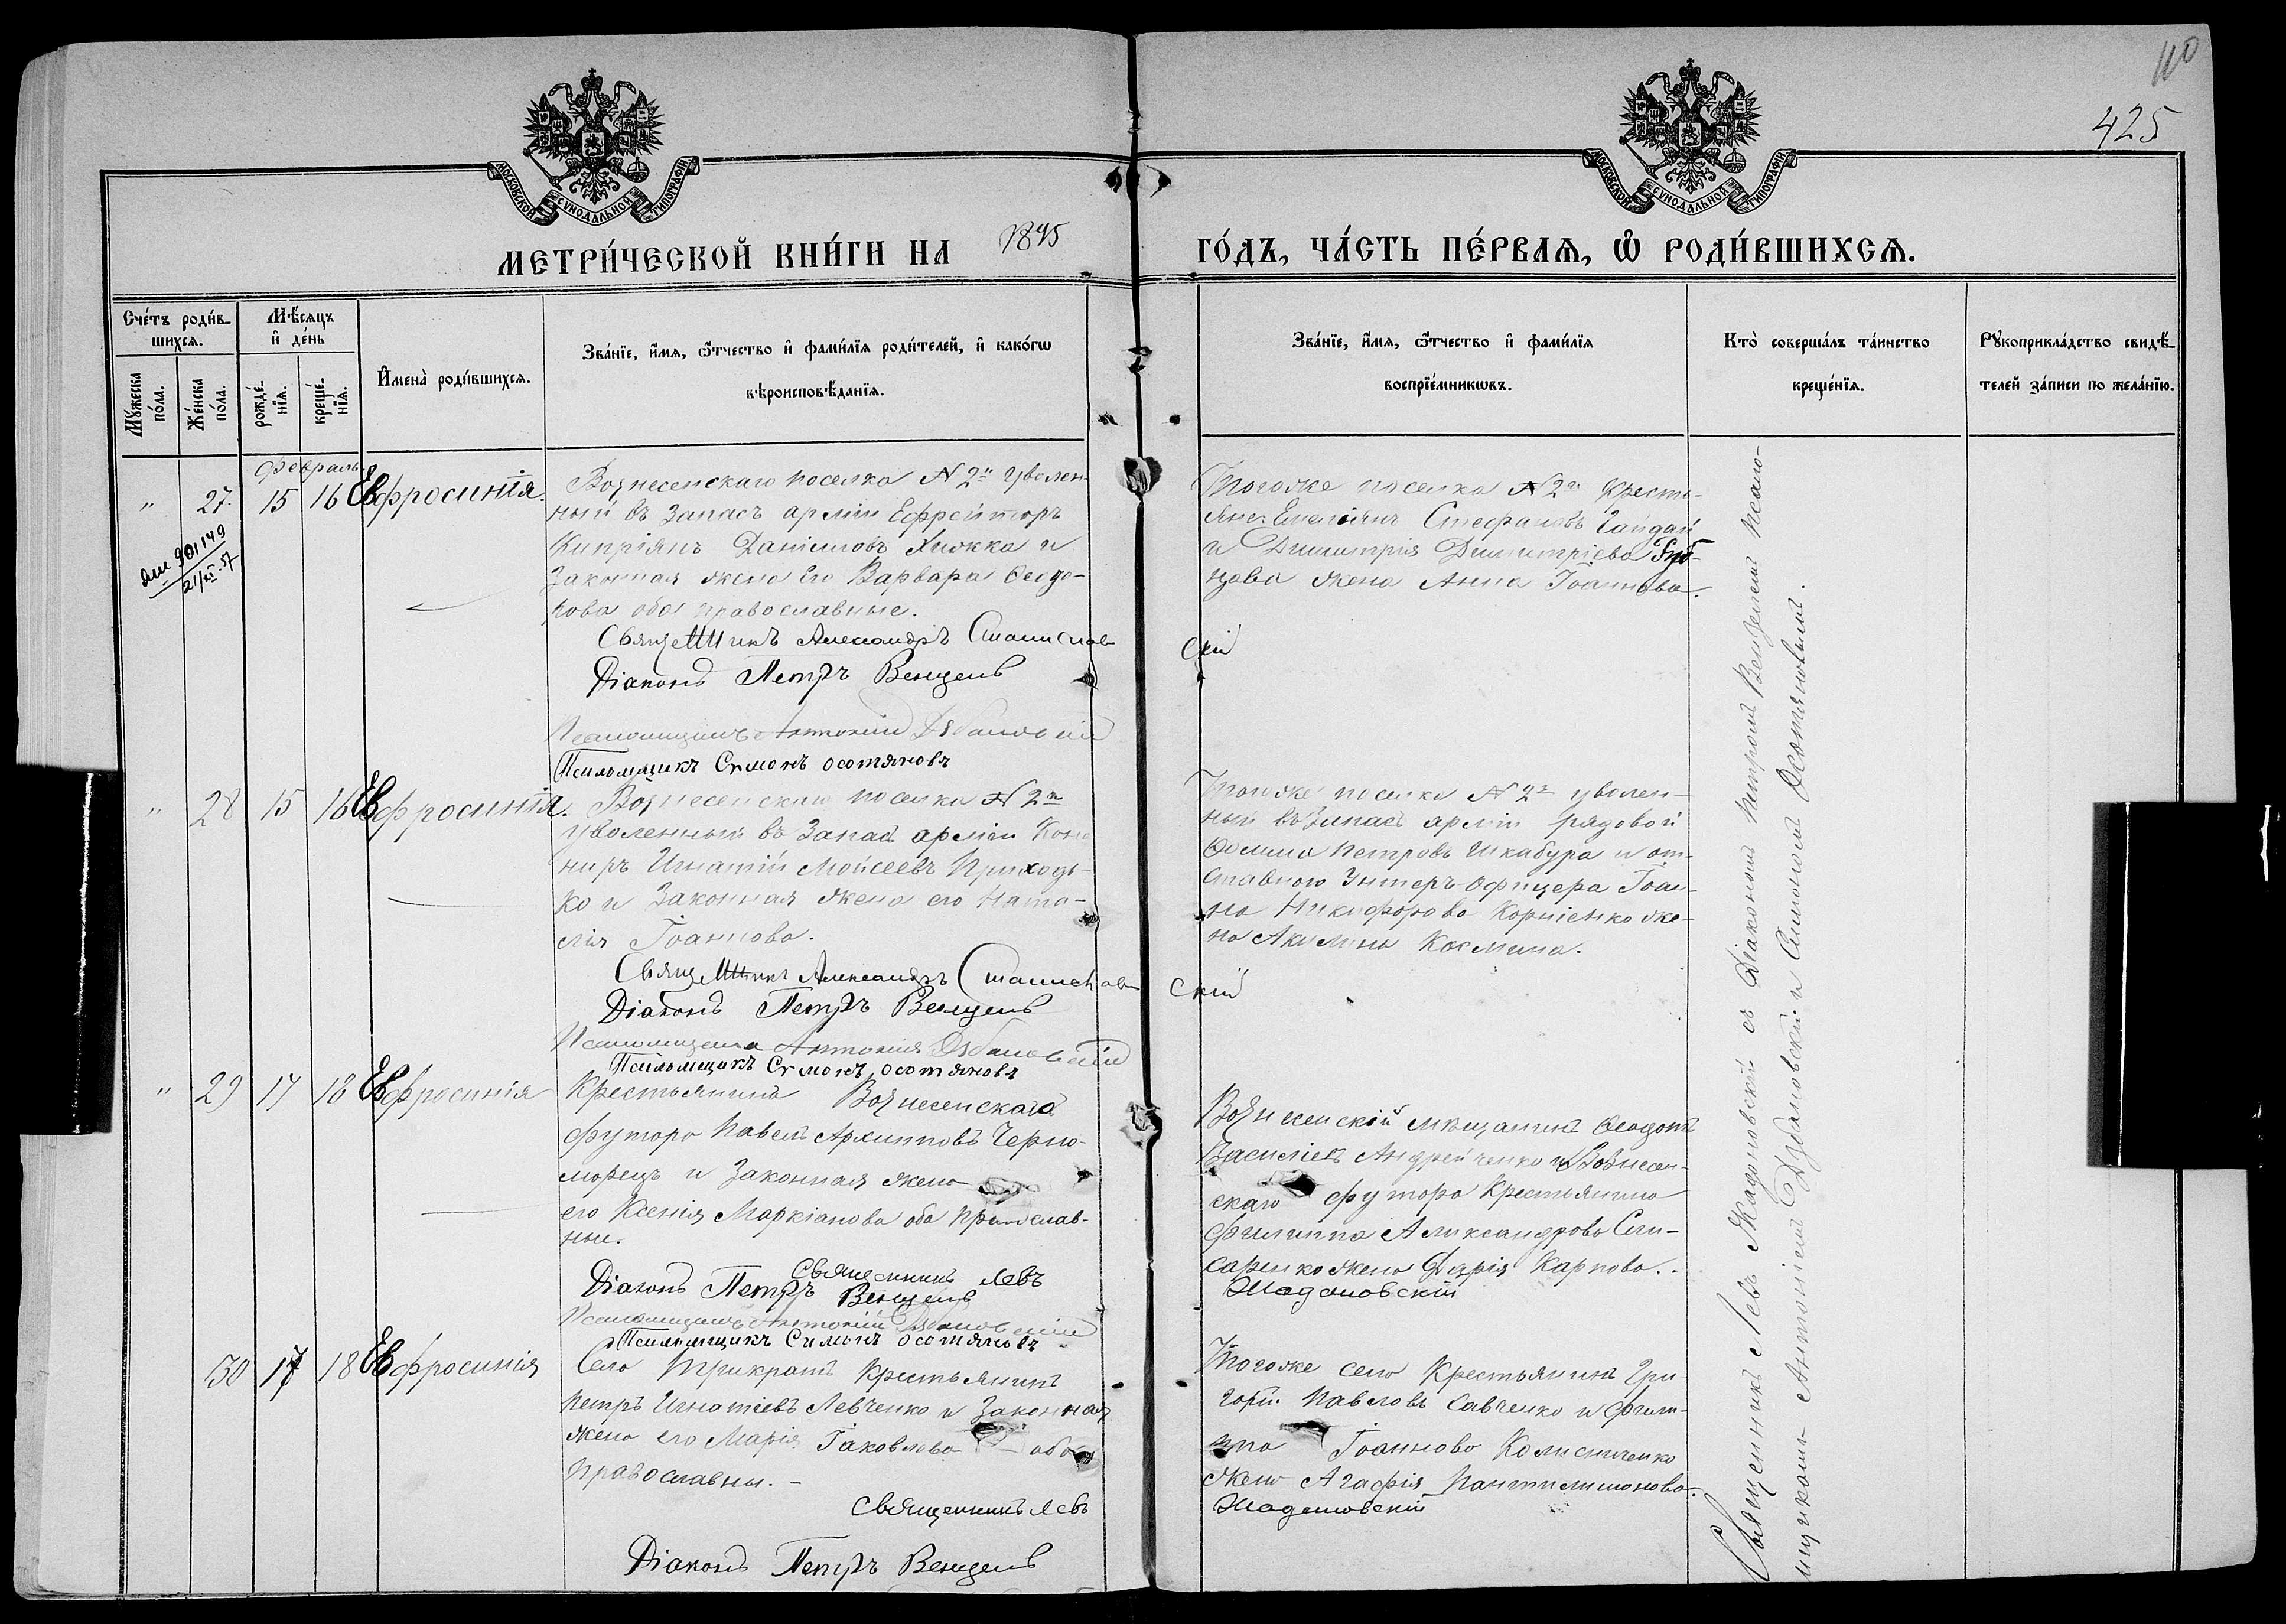 110
425
МОСКОВСКОЙ СУНОДАЛЬНОЙ ТИПОГРАФІИ
МОСКОВСКОЙ СУНОДАЛЬНОЙ ТИПОГРАФІИ
МЕТРИ́ЧЕСКОЙ КНИ́ГИ НА 1895 ГО́ДЪ, ЧА́СТЬ ПЕ́РВАѦ, Ѡ҆ РОДИ́ВШИХСѦ.
Сче́тъ роди́в-
шихсѧ.
Мꙋ́жеска
по́ла.
Же́нска
по́ла.
Мѣ́сѧцъ
и҆ де́нь
рожде́-
нїѧ.
креще́-
нїѧ.
И҆мена̀ роди́вшихсѧ.
Зва́нїе, и҆́мѧ, ѻ҆́тчество и҆ фами́лїѧ роди́телей, и҆ како́гѡ
вѣроисповѣ́данїѧ.
Зва́нїе, и҆́мѧ, ѻ҆́тчество и҆ фами́лїѧ
воспрїе́мникѡвъ.
Кто̀ соверша́лъ та́инство
креще́нїѧ.
Рꙋкоприкла́дство свидѣ́-
телей за́писи по жела́нїю.
Февраль
" 27. 15 16 Евфросинія.
Вознесенскаго поселка № 2й уволен-
ный въ запасъ арміи Ефрейторъ
Кипріянъ Даніиловъ Хижка и
законная жена его Варвара Ѳеодо-
рова оба православные.
Священникъ Александръ Станиславскій
Діаконъ Петръ Венцель
Псаломщикъ Антоній Дзбановскій
Псаломщикъ Сѵмонъ Осотяновъ
Тогоже поселка № 2й Кресть-
янъ Емеліянъ Стефановъ Гайдай
и Димитрія Димитріева Губ-
цова жена Анна Іоаннова.
" 28 15 16 Евфросинія.
Вознесенскаго поселка № 2й
уволенный въ запасъ арміи Коно
ниръ Игнатій Моисеевъ Приходь-
ко и законная жена его Ната-
лія Іоаннова.
Священникъ Александръ Станиславскій
Діаконъ Петръ Венцель
Псаломщикъ Антоній Дзбановскій
Псаломщикъ Сѵмонъ Осотяновъ
Тогоже поселка № 2й уволен-
ный въ запасъ арміи рядовой
Ѳомина Петровъ Шкабура и от-
ставного Унтеръ-Офицера Іоан-
на Никифорова Корніенко же-
на Акилина Космина.
" 29 17 18 Евфросинія
Крестьянинъ Вознесенскаго
хутора Павелъ Архипповъ Черно-
морецъ и законная жена
его Ксенія Маркіанова оба православ-
ные.
Священникъ Левъ Жадановскій
Діаконъ Петръ Венцель
Псаломщикъ Антоній Дзбановскій
Псаломщикъ Симонъ Осотяновъ
Вознесенскій мѣщанинъ Ѳеодотъ
Василіевъ Андрейченко и Вознесен-
скаго хутора Крестьянина
Филиппа Александрова Сли-
саренко жена Дарія Карпова.
30 17 18 Евфросинія
Села Трикратъ Крестьянинъ
Петръ Игнатіевъ Левченко и законная
жена его Марія Іаковлева оба
православны.
Священникъ Левъ Жадановскій
Діаконъ Петръ Венцель
Тогоже села Крестьянинъ Гри-
горій Павловъ Савченко и Филип-
па Іоаннова Колисниченко
жена Агафія Пантилимонова.
Священникъ Левъ Жадановскій съ Діакономъ Петромъ Венцелемъ Псало-
мщиками Антоніемъ Дзбановскій и Симономъ Осотяновымъ.